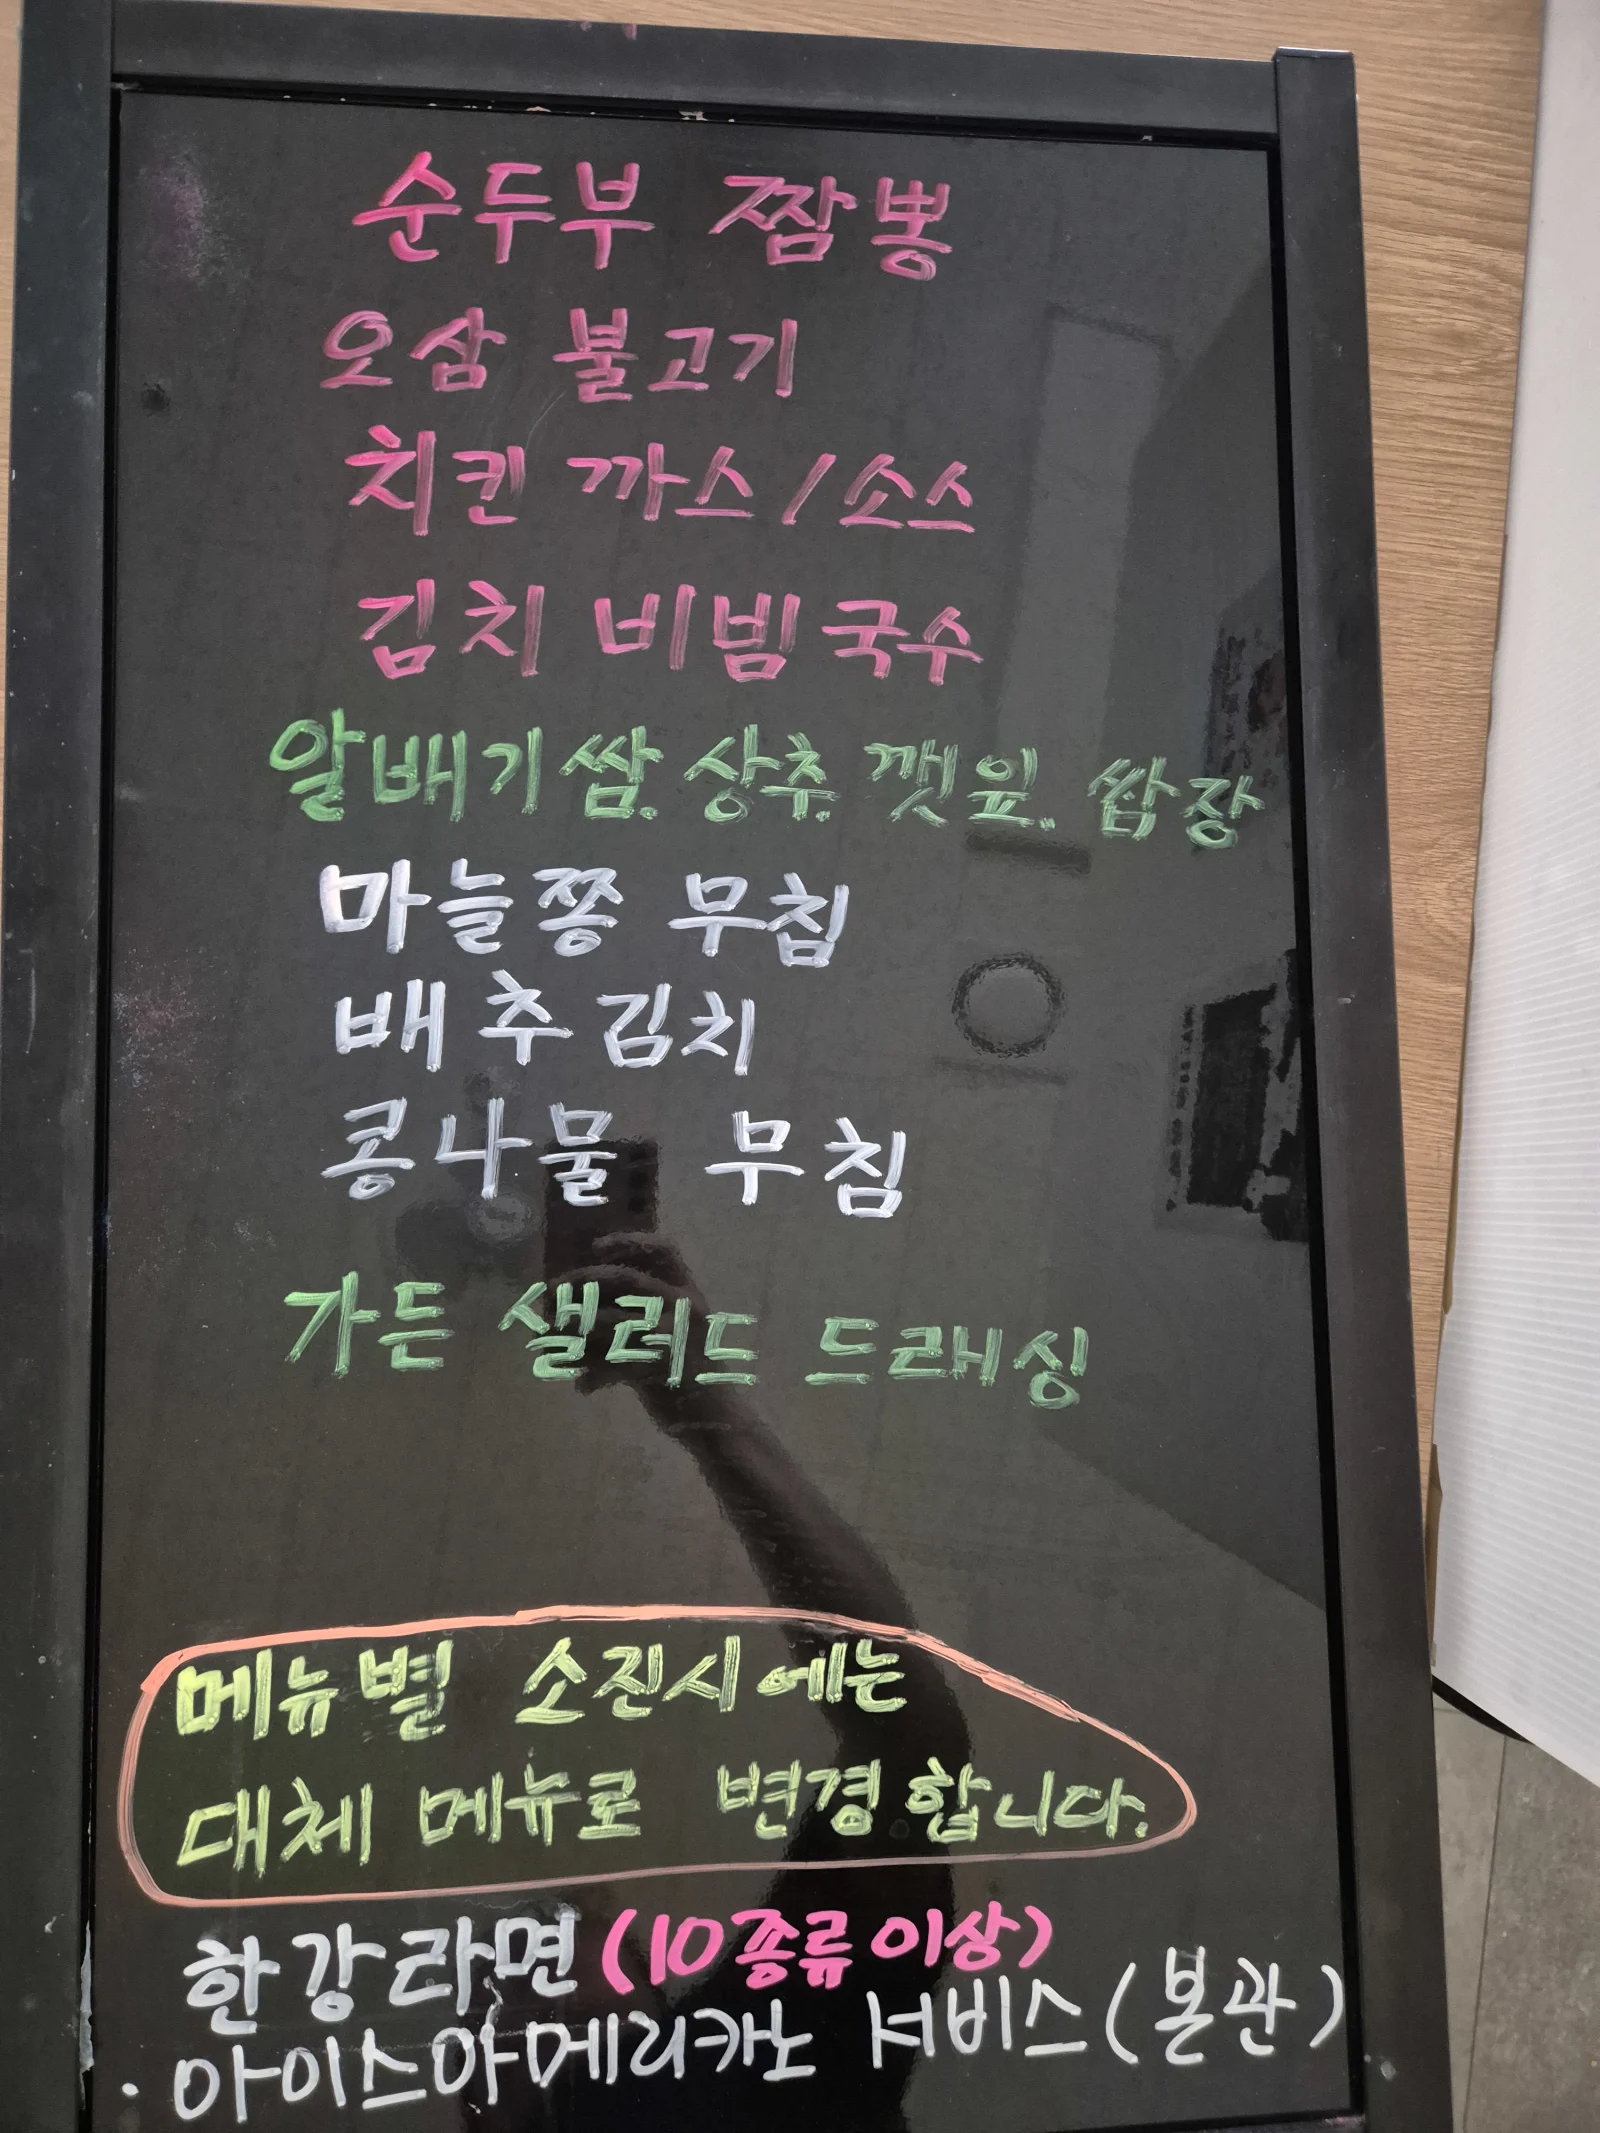 순두부 짬뽕
오삼 불고기
치킨 까스/소스
김치 비빔국수
알배기쌈. 상추. 깻잎. 쌈장
마늘쫑 무침
배추김치
콩나물 무침
가든 샐러드 드래싱
메뉴별 소진시에는
대체 메뉴로 변경합니다.
한강라면(10종류이상)
·아이스아메리카노 서비스(본관)